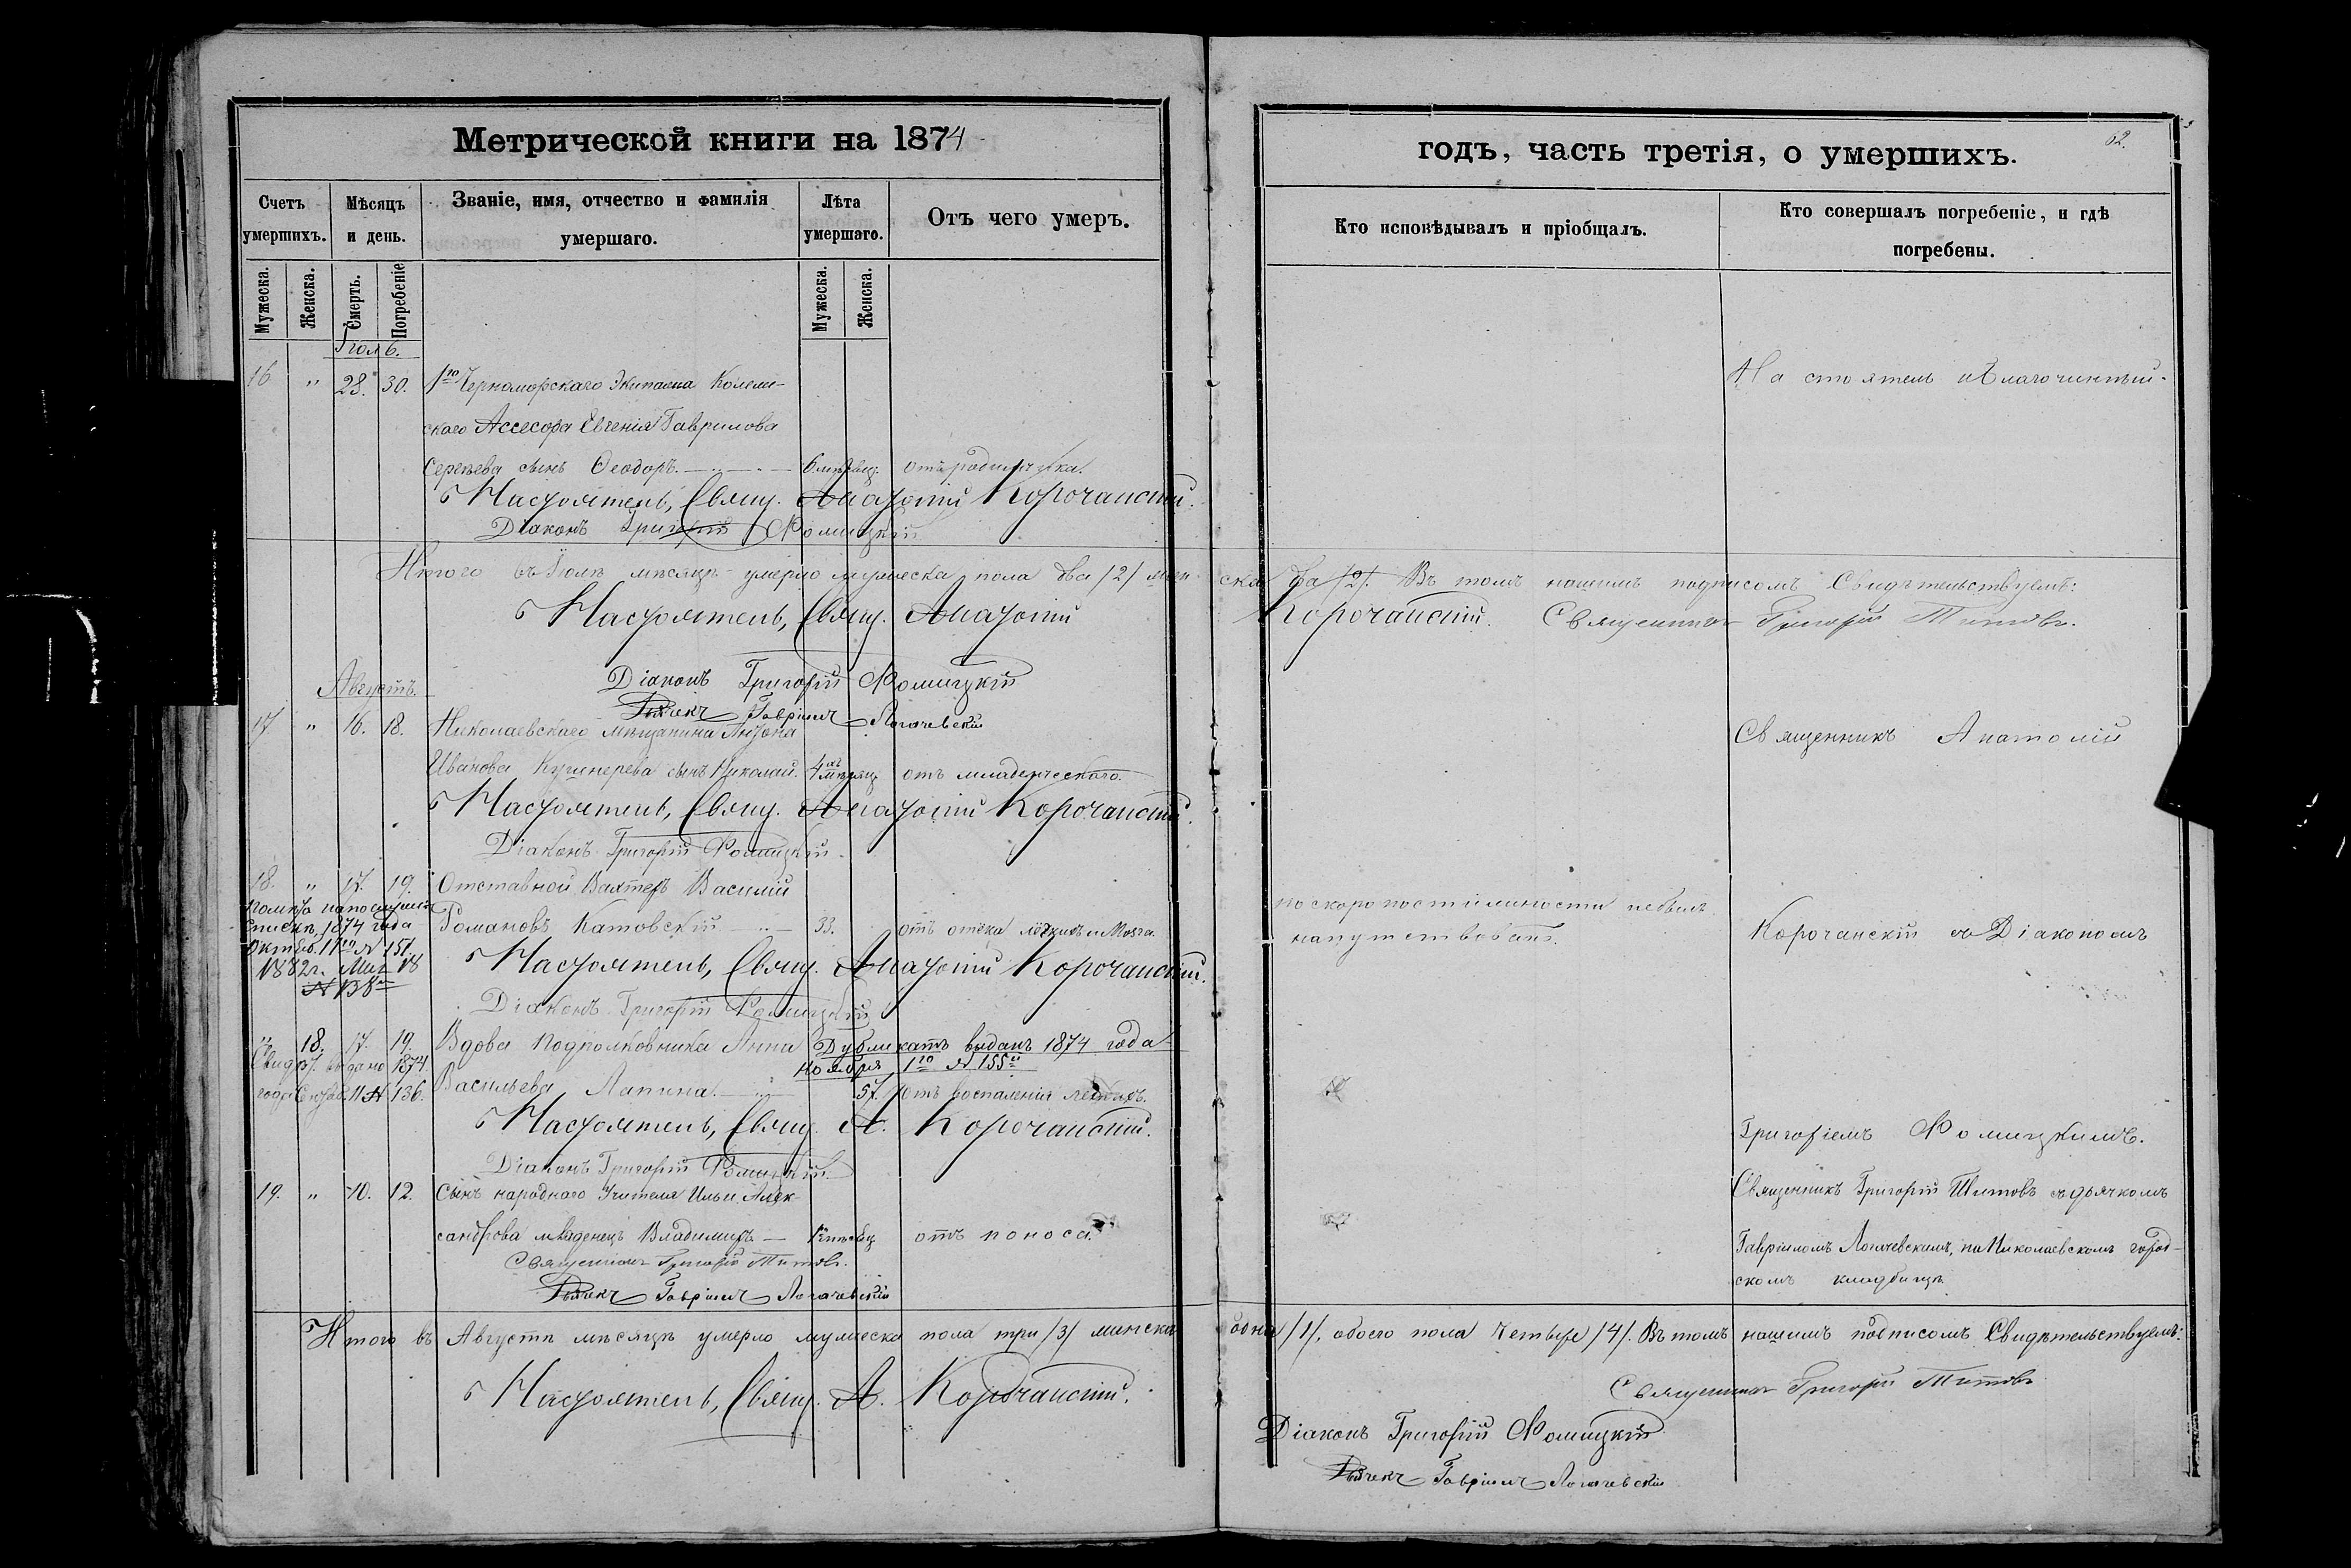 Метрической книги на 1874
Счетъ умершихъ.
Мѣсяцъ и день.
Званіе, имя, отчество и фамилія умершаго.
Лѣта умершаго.
Отъ чего умеръ.
Мужеска.
Женска.
Смерть.
Погребеніе
Мужеска.
Женска.
Іюль
16 " 28. 30. 1го Черноморскаго Экипажа Коллеж-
скаго Ассесора Евгенія Гаврилова
Сергѣева сынъ Ѳеодоръ. 6 мѣсяц. отъ родимчика.
Настоятель, Свящ. Анатолій Корочанскій.
Діаконъ Григорій Ѳомицкій
Итого въ Іюлѣ мѣсяцѣ умерло мужеска пола два /2/ жен-
Настоятель, Свящ. Анатолій
Діаконъ Григорій Ѳомицкій
Дьячекъ Гавріилъ Логачевскій
Августъ.
17 " 16. 18. Николаевскаго мѣщанина Антона
Иванова сынъ Николай. 4 мѣсяц. отъ младенческаго.
Настоятель, Свящ. Анатолій Корочанскій.
Діаконъ Григорій Ѳомицкій.
18. " 17. 19. Отставной Вахтеръ Василій
Романовъ Катовскій 33. отъ отёка лёгкихъ и мозга.
1874 года
Октяб. 11го № 151.
1882 г. 18
№ 138
Настоятель, Свящ. Анатолій Корочанскій.
Діаконъ Григорій Ѳомицкій
" 18. 17. 19. Вдова Подполковника Анна
Дубликатъ выданъ 1874 года
Ноября 1го № 155й
Свидѣт. выдано 1874
года 11 № 136.
Васильева Лапина. 57. Отъ воспаленія легкихъ.
Настоятель, Свящ. А. Корочанскій.
Діаконъ Григорій Ѳомицкій.
19. " 10. 12. Сынъ народнаго Учителя Ильи Алек-
сандрова младенецъ Владимиръ отъ поноса.
Священникъ Григорій Титовъ.
Дьячекъ Гавріилъ Логачевскій
Итого въ Августѣ мѣсяцѣ умерло мужеска пола три /3/ женска
Настоятель, Свящ. А. Корочанскій.
годъ, часть третія, о умершихъ.
62.
Кто исповѣдывалъ и пріобщалъ.
Кто совершалъ погребеніе, и гдѣ погребены.
Настоятель и Благочинный
ска два /2/. Въ томъ нашимъ подписомъ Свидѣтельствуемъ:
Корочанскій. Священникъ Григорій Титовъ.
Священникъ Анатолій
по скоропостижности небылъ
напутствованъ.
Корочанскій съ Діакономъ
Григоріемъ Ѳомицкимъ.
Священникъ Григорій Титовъ съ дьячкомъ
Гавріиломъ Логачевскимъ, на Николаевскомъ город-
скомъ кладбищѣ
одна /1/. обоего пола Четыре /4/. Въ томъ нашимъ подписомъ Свидѣтельствуемъ:
Священникъ Григорій Титовъ
Діаконъ Григорій Ѳомицкій
Дьячекъ Гавріилъ Логачевскій